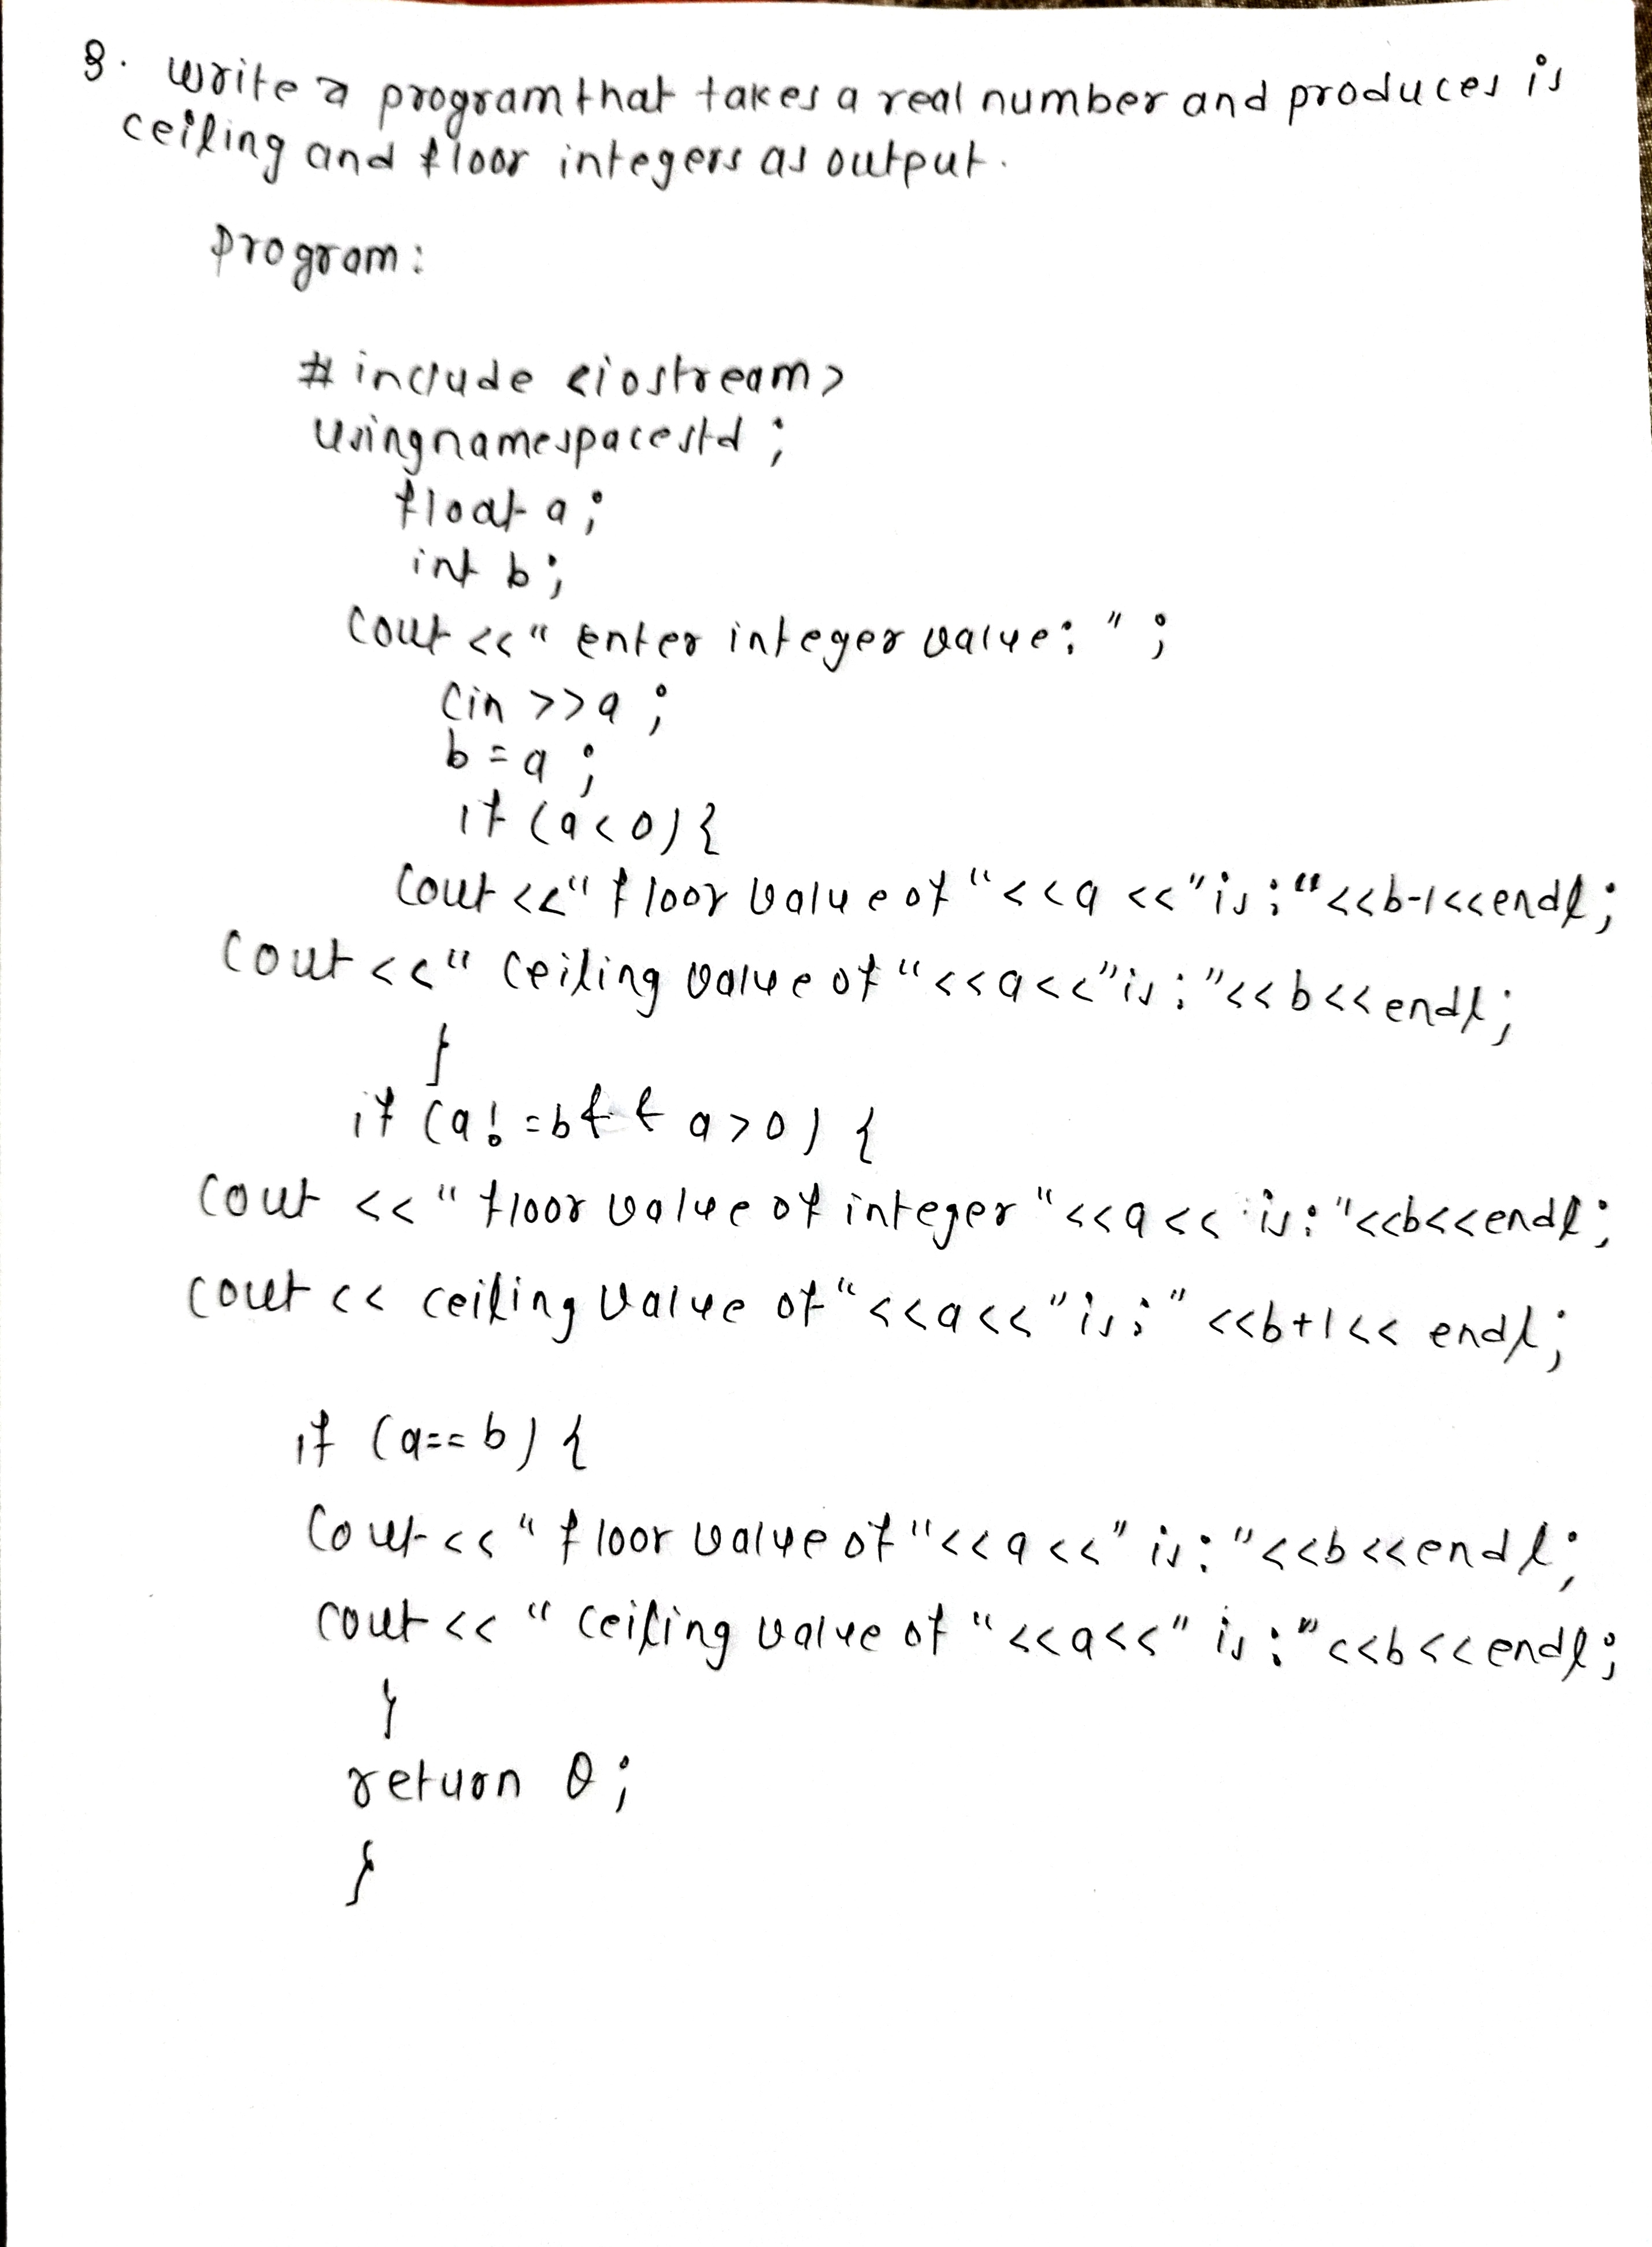 8. write a program that takes a real number and produces is
ceiling and floor integers as output.
program:
# include <iostream>
usingnamespacestd ;
float a ;
int b ;
cout << " Enter integer value: " ;
cin >> a ;
b = a ;
if (a < 0) {
cout << " floor value of " << a << "is : " << b-1 << endl ;
cout << " ceiling value of " << a << "is : " << b << endl ;
}
if (a! = b && a > 0) {
cout << " floor value of integer " << a << is : " << b << endl ;
cout << ceiling value of " << a << "is : " << b+1 << endl ;
if (a == b) {
cout << " floor value of " << a << " is : " << b << endl ;
cout << " ceiling value of " << a << " is : " << b << endl ;
}
return 0 ;
}